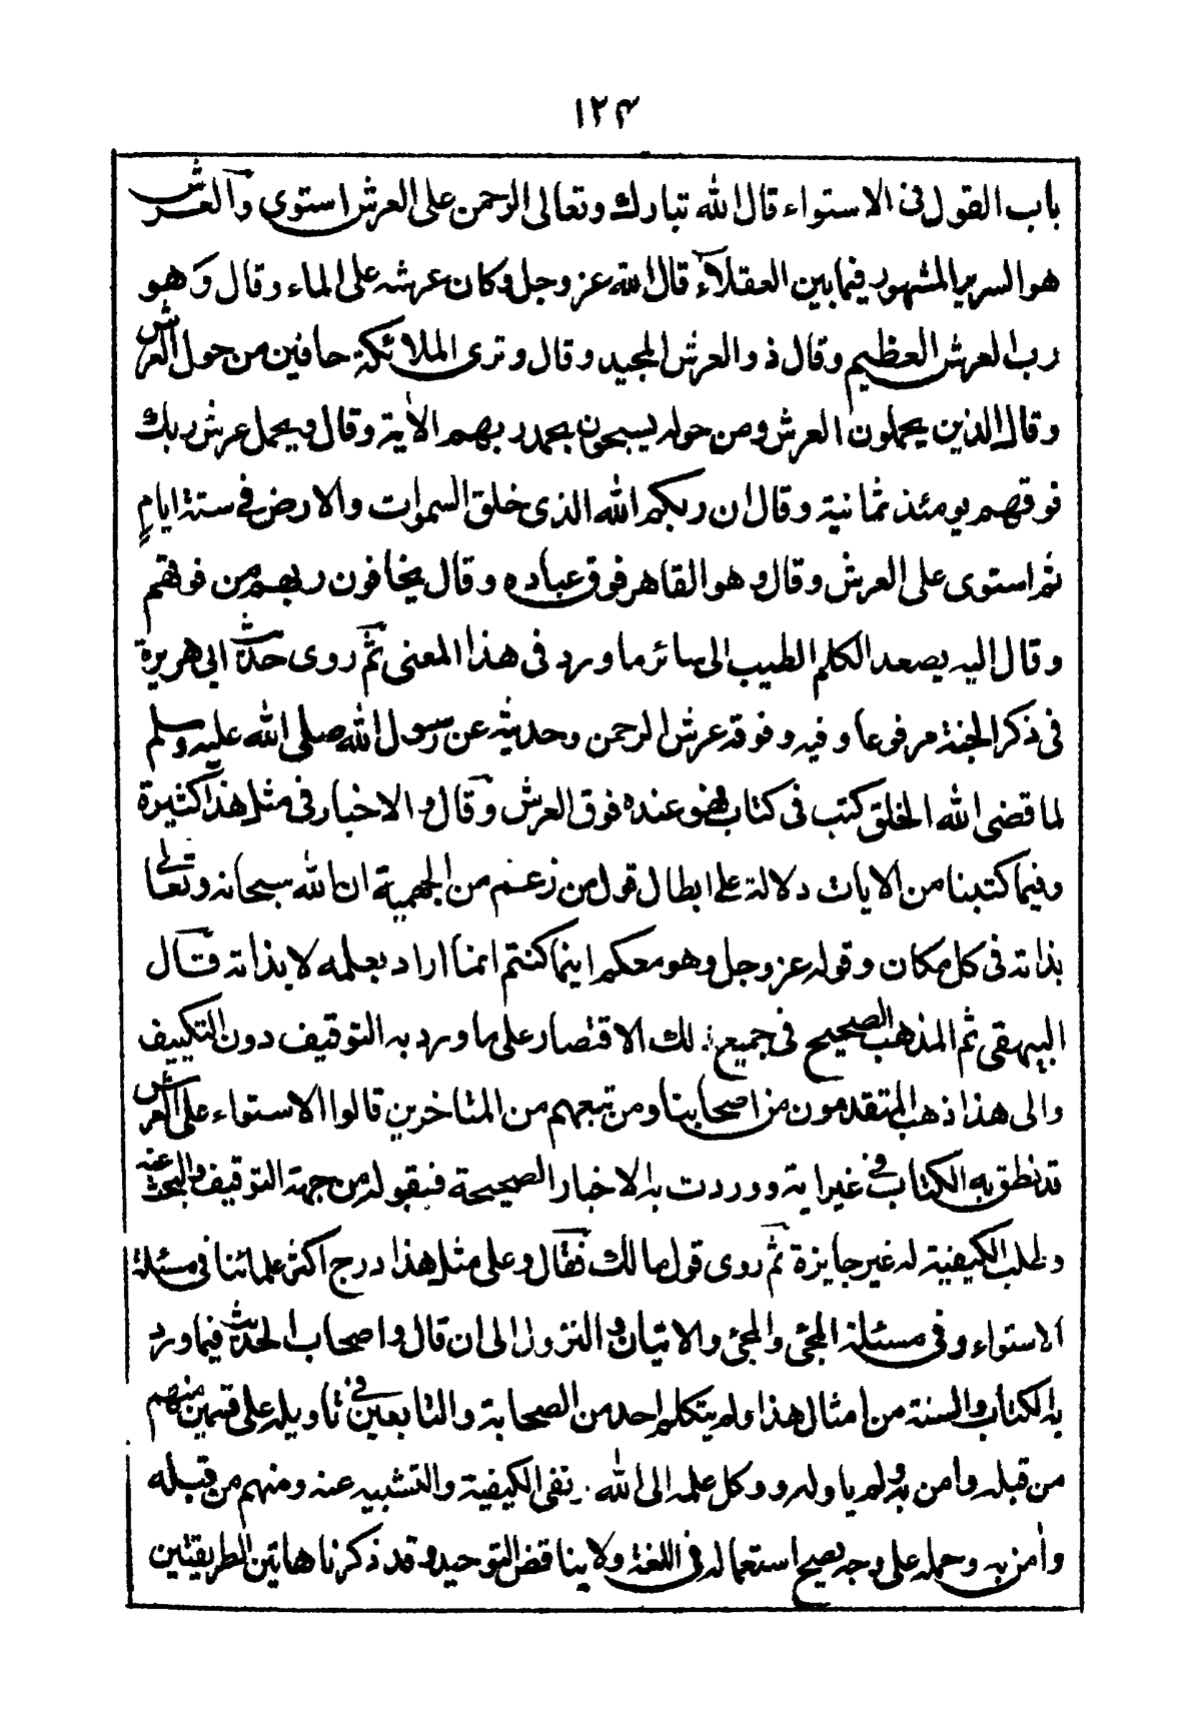 ١٢٤
باب القول فى الاستواء قال الله تبارك وتعالى الرحمن على العرش استوى والعرش
هو السرير المشهور فيما بين العقلاء قال الله عز وجل وكان عرشه على الماء وقال وهو
رب العرش العظيم وقال ذو العرش المجيد وقال وترى الملائكة حافين من حول العرش
وقال الذين يحملون العرش ومن حوله يسبحون بحمد ربهم الاٰية وقال ويحمل عرش ربك
فوقهم يومئذ ثمانية وقال ان ربكم الله الذى خلق السموات والارض فى ستة ايامٍ
ثم استوى على العرش وقال وهو القاهر فوق عباده وقال يخافون ربهم من فوقهم
وقال اليه يصعد الكلم الطيب الى سائر ما ورد فى هذا المعنى ثم روى حديث ابى هريرة
فى ذكر الجنة مرفوعا وفيه وفوقه عرش الرحمن وحديثه عن رسول الله صلى الله عليه وسلم
لما قضى الله الخلق كتب فى كتاب فهو عنده فوق العرش وقال والاخبار فى مثل هذا كثيرة
وفيما كتبنا من الايات دلالة على ابطال قول من زعم من الجهمية ان الله سبحانه وتعالى
بذاته فى كل مكان وقوله عز وجل وهو معكم اينما كنتم انما اراد بعلمه لا بذاته قال
البيهقى ثم المذهب الصحيح فى جميع ذلك الاقتصار على ما ورد به التوقيف دون التكييف
والى هذا ذهب المتقدمون من اصحابنا ومن تبعهم من المتاخرين قالوا الاستواء على العرش
قد نطق به الكتاب فى غير اية ووردت به الاخبار الصحيحة فبقوله من جهة التوقيف والبحث عنه
وطلب الكيفية له غير جايزة ثم روى قول مالك فقال وعلى مثل هذا درج اكثر علمائنا فى مسئلة
الاستواء وفى مسئلة المجئ والمجئ والاتيان والنزول الى ان قال واصحاب الحديث فيما ورد
به الكتاب والسنة من امثال هذا ولم يتكلم احد من الصحابة والتابعين فى تاويله على قسمين منهم
من قبله وأمن به ولم ياوله ووكل علمه الى الله ونفى الكيفية والتشبيه عنه ومنهم من قبله
وأمن به وحمله على وجه يصح استعماله فى اللغة ولا يناقض التوحيد وقد ذكرنا هاتين الطريقتين